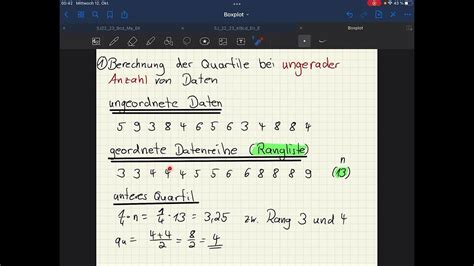 00:43 Mittwoch 12. Okt.
Boxplot
Boxplot
① Berechnung der Quartile bei ungerader
Anzahl von Daten
ungeordnete Daten
5 9 3 8 4 6 5 6 3 4 8 8 4
geordnete Datenreihe (Rangliste)
n
3 3 4 4 4 5 5 6 6 8 8 8 9 (13)
unteres Quartil
1/4 · n = 1/4 · 13 = 3,25 zw. Rang 3 und 4
qu = 4+4/2 = 8/2 = 4